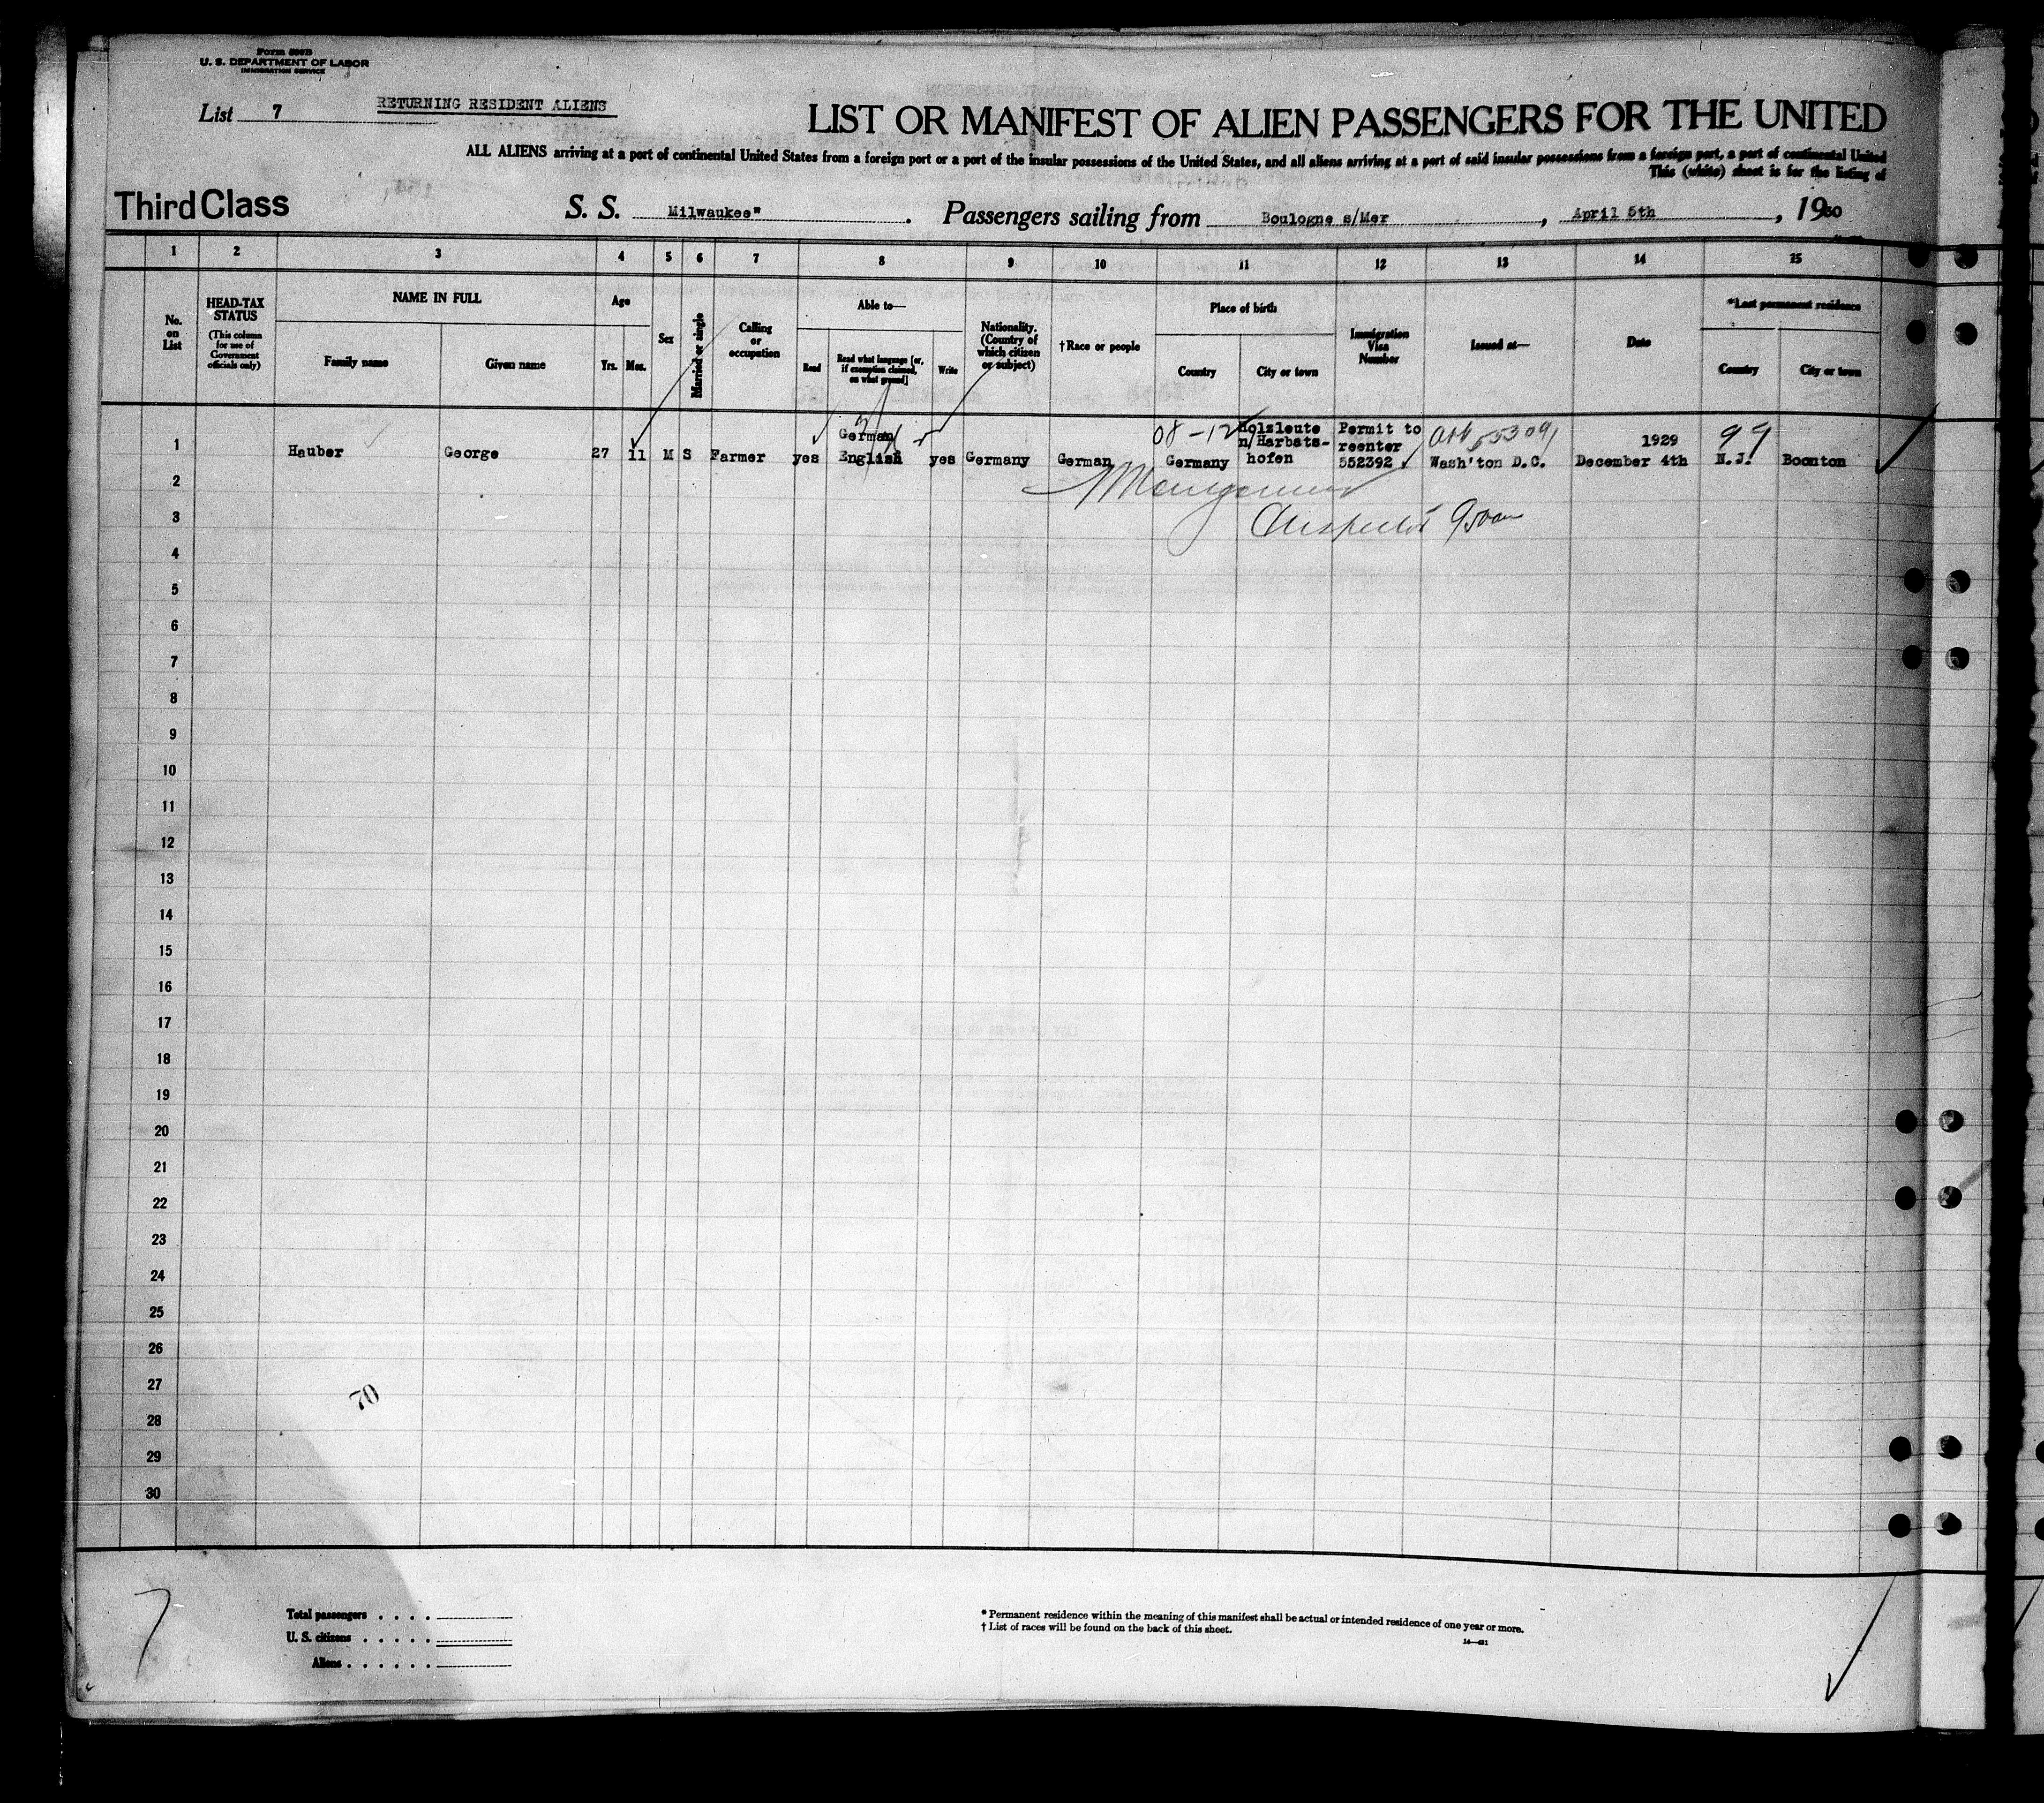 Form 500B
U. S. DEPARTMENT OF LABOR
IMMIGRATION SERVICE
List 7
RETURNING RESIDENT ALIENS
LIST OR MANIFEST OF ALIEN PASSENGERS FOR THE UNITED
ALL ALIENS arriving at a port of continental United States from a foreign port or a port of the insular possessions of the United States, and all aliens arriving at a port of said insular possessions from a foreign port, a port of continental United
This (white) sheet is for the listing of
Third Class S. S. Milwaukee" . Passengers sailing from Boulogne s/Mer , April 5th , 1930
1 2 3 4 5 6 7 8 9 10 11 12 13 14 15
No. on List
HEAD-TAX STATUS
(This column for use of Government officials only)
NAME IN FULL
Family name Given name
Age
Yrs. Mos.
Sex
Married or single
Calling or occupation
Able to—
Read
Read what language [or, if exemption claimed, on what ground]
Write
Nationality. (Country of which citizen or subject)
†Race or people
Place of birth
Country City or town
Immigration Visa Number
Issued at—
Date
*Last permanent residence
Country City or town
1 Hauber George 27 11 M S Farmer yes German English yes Germany German Germany Holzleute n/Harbats-hofen Permit to reenter 552392 Wash'ton D.C. 1929 December 4th N.J. Boonton
08-12
99
2
3
4
5
6
7
8
9
10
11
12
13
14
15
16
17
18
19
20
21
22
23
24
25
26
27
28
29
30
70
7
Total passengers . . . .
U. S. citizens . . . . .
Aliens . . . . . .
* Permanent residence within the meaning of this manifest shall be actual or intended residence of one year or more.
† List of races will be found on the back of this sheet.